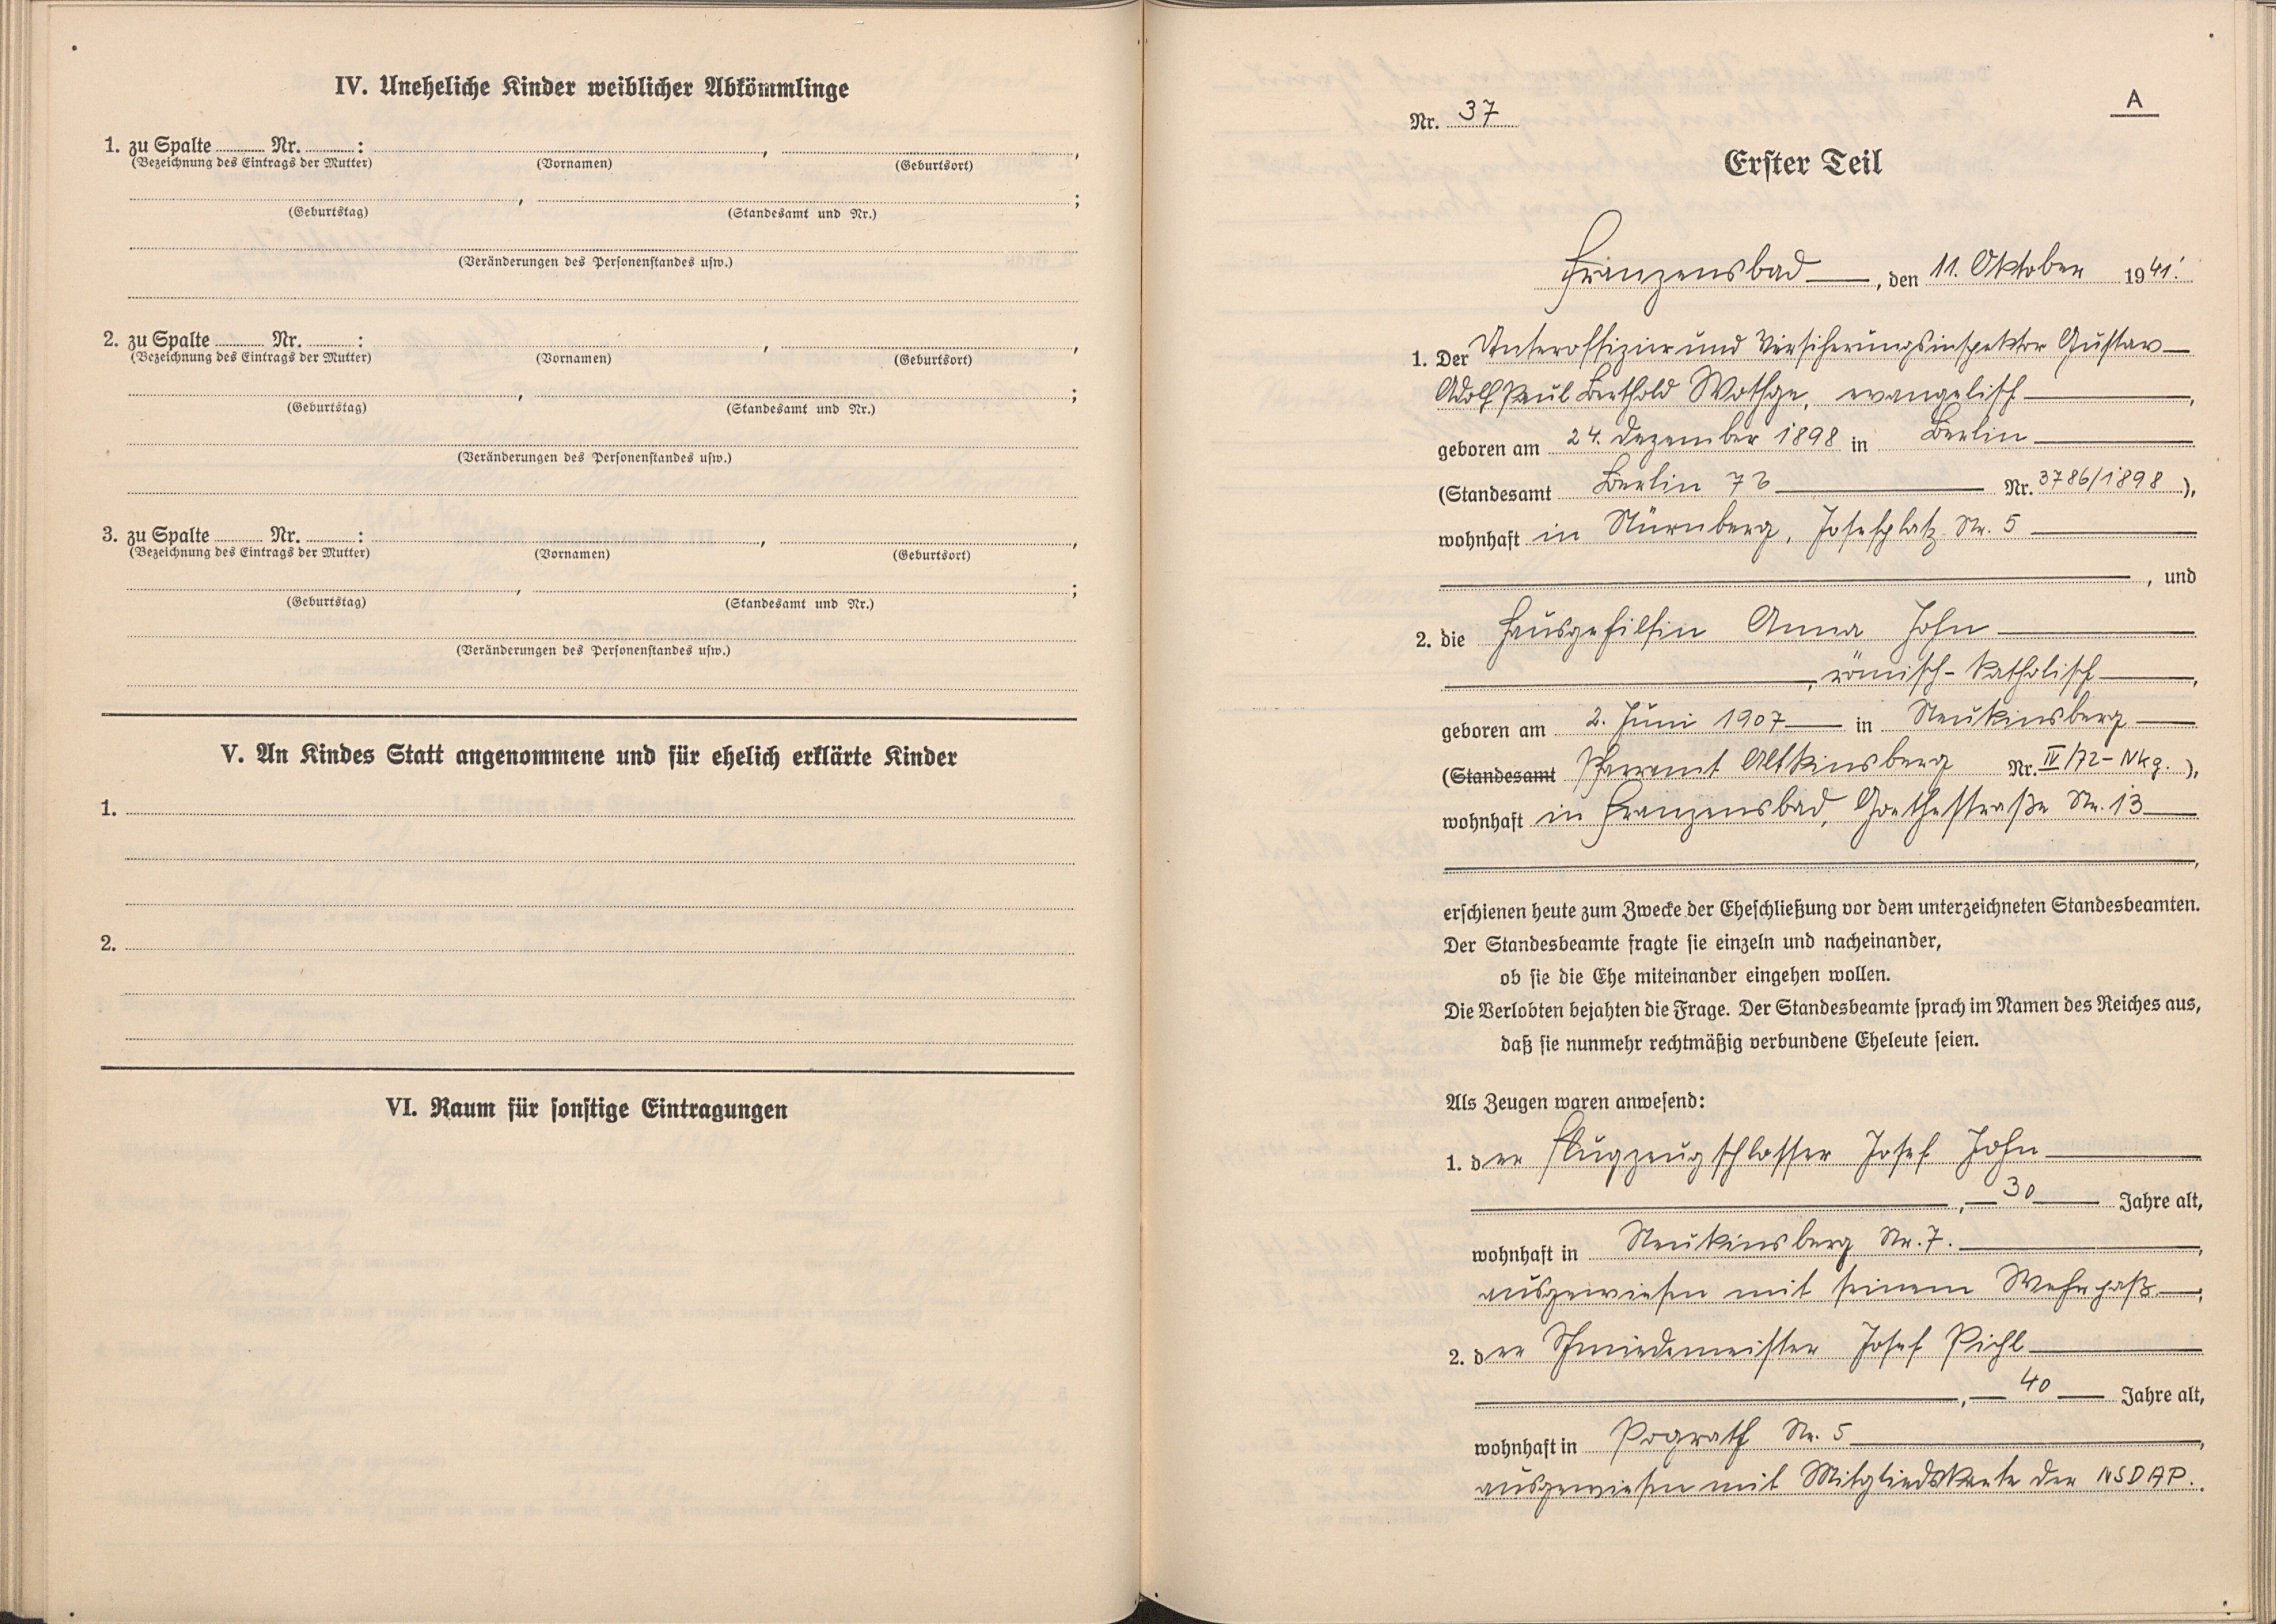 IV. Uneheliche Kinder weiblicher Abkömmlinge
1. zu Spalte ........ Nr. ........ : , ,
(Bezeichnung des Eintrags der Mutter) (Vornamen) (Geburtsort)
, ;
(Geburtstag) (Standesamt und Nr.)
(Veränderungen des Personenstandes usw.)
2. zu Spalte ........ Nr. ........ : , ,
(Bezeichnung des Eintrags der Mutter) (Vornamen) (Geburtsort)
, ;
(Geburtstag) (Standesamt und Nr.)
(Veränderungen des Personenstandes usw.)
3. zu Spalte ........ Nr. ........ : , ,
(Bezeichnung des Eintrags der Mutter) (Vornamen) (Geburtsort)
, ;
(Geburtstag) (Standesamt und Nr.)
(Veränderungen des Personenstandes usw.)
V. An Kindes Statt angenommene und für ehelich erklärte Kinder
1.
2.
VI. Raum für sonstige Eintragungen
A
Nr. 37
Erster Teil
Franzensbad, den 11. Oktober 1941.
1. Der Unteroffizier und Versicherungsinspektor Gustav
Adolf Paul Berthold Wothge, evangelisch,
geboren am 24. Dezember 1898 in Berlin
(Standesamt Berlin 7b Nr. 3786/1898),
wohnhaft in Nürnberg, Josefsplatz Nr. 5
, und
2. die Hausgehilfin Anna John
, römisch-katholisch,
geboren am 2. Juni 1907 in Neukinsberg
(Standesamt Pfarramt Altkinsberg Nr. IV/72-Nkg.),
wohnhaft in Franzensbad, Goethestraße Nr. 13
,
erschienen heute zum Zwecke der Eheschließung vor dem unterzeichneten Standesbeamten.
Der Standesbeamte fragte sie einzeln und nacheinander,
ob sie die Ehe miteinander eingehen wollen.
Die Verlobten bejahten die Frage. Der Standesbeamte sprach im Namen des Reiches aus,
daß sie nunmehr rechtmäßig verbundene Eheleute seien.
Als Zeugen waren anwesend:
1. der Flugzeugschlosser Josef John
, 30 Jahre alt,
wohnhaft in Neukinsberg Nr. 7.,
ausgewiesen mit seinem Wehrpaß;
2. der Schmiedemeister Josef Pichl
, 40 Jahre alt,
wohnhaft in Pograth Nr. 5,
ausgewiesen mit Mitgliedskarte der NSDAP.